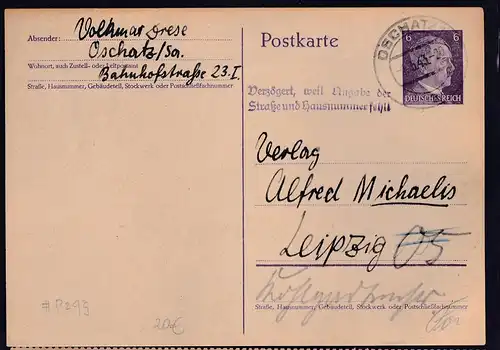 Absender: Volkmar Drese
Oschatz/Sa.
Wohnort, auch Zustell- oder Leitpostamt
Bahnhofstraße 23.I
Straße, Hausnummer, Gebäudeteil, Stockwerk oder Postschließfachnummer
Postkarte
OSCHATZ
6 6
DEUTSCHES REICH
Verzögert, weil Angabe der
Straße und Hausnummer fehlt
Verlag
Alfred Michaelis
Leipzig O5
Straße, Hausnummer, Gebäudeteil, Stockwerk oder Postschließfachnummer
20€